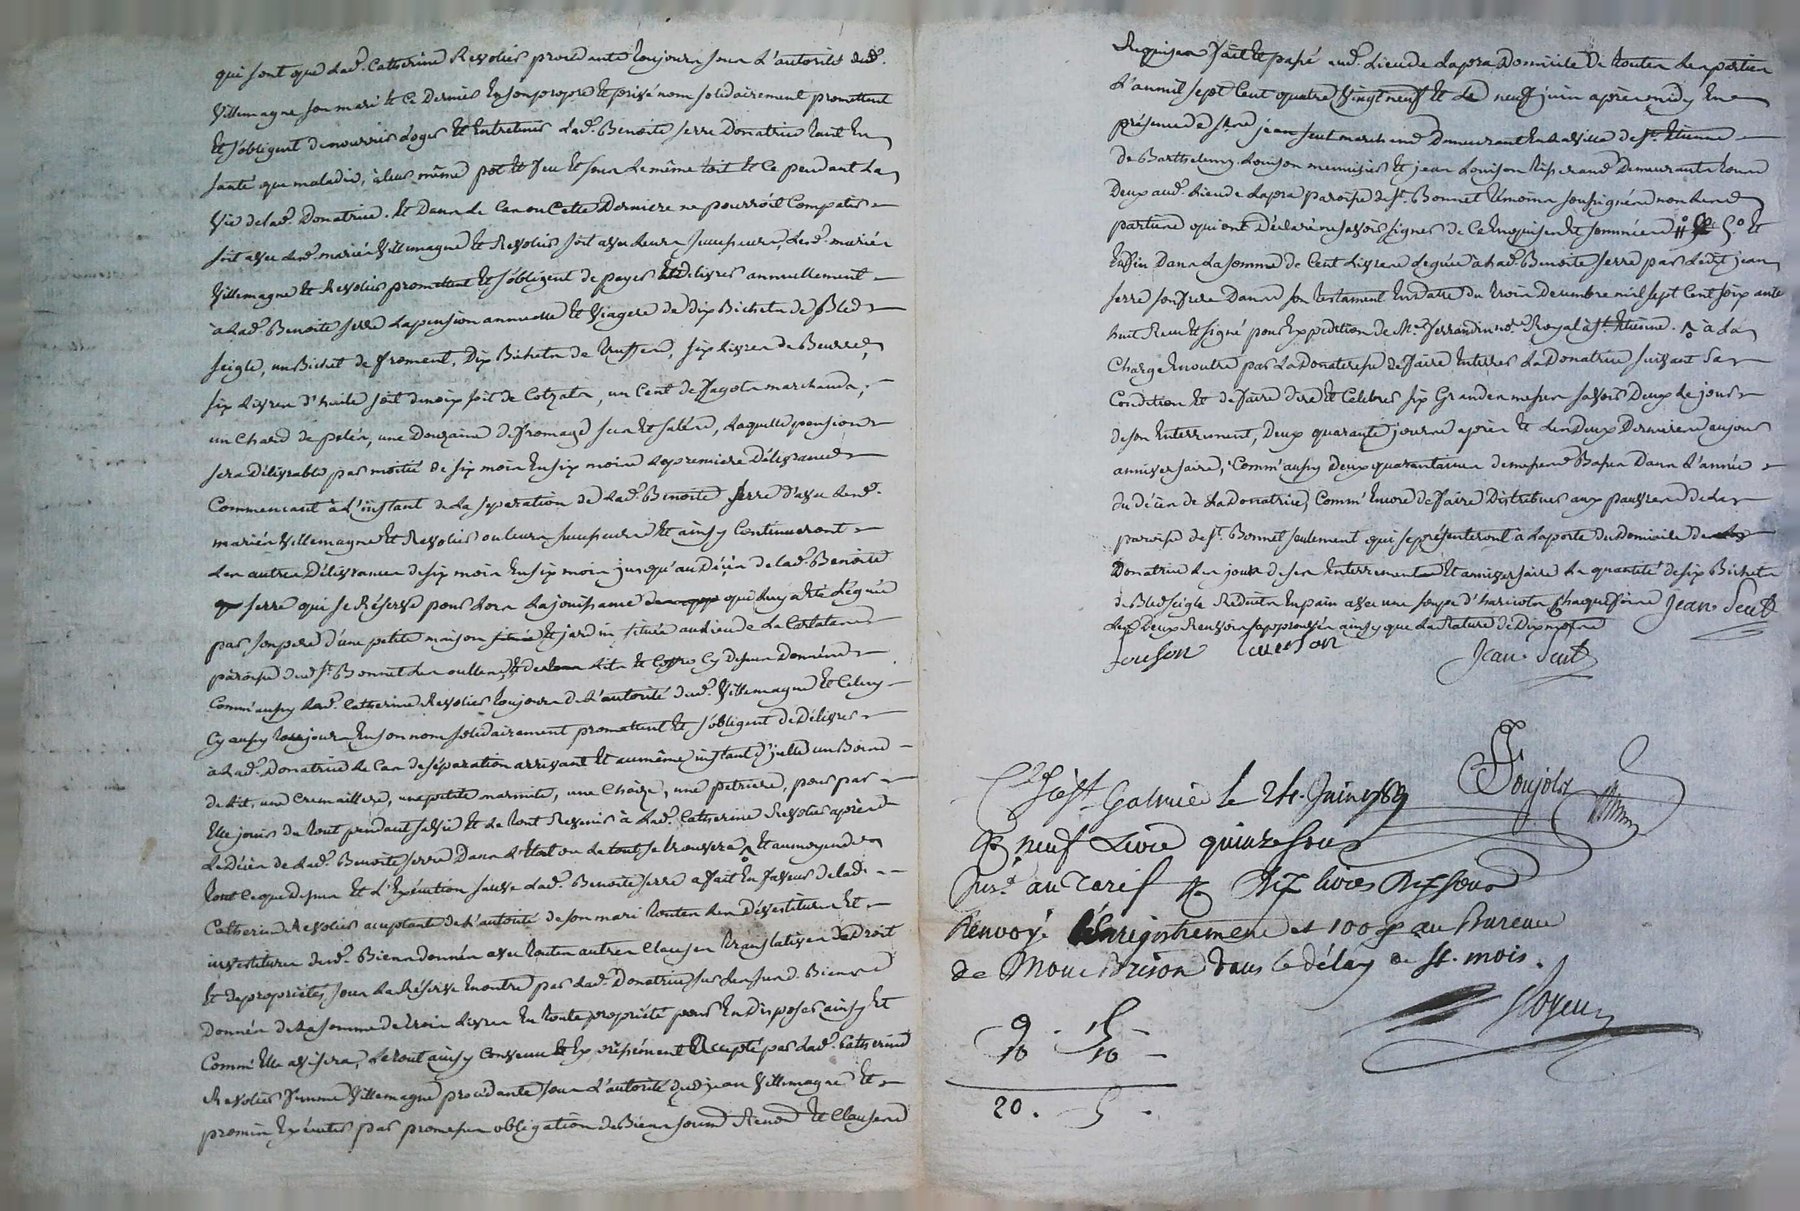 qui sont que lad.e Catherine Revolier procedante toujours sous l'autorité dud.
Villemagne son mari et ce dernier en son propre et privé nom solidairement promettent
et s'obligent de nourrir loger et entretenir lad.e Benoite Serre donatrice tant en
santé que maladie, à leur même pot et feu et sous le même toit et ce pendant la
vie de lad.e donatrice. Et dans le cas ou cette derniere ne pourroit compatir
soit avec lesd. mariés Villemagne et Revolier soit avec leurs successeurs, lesd. mariés
Villemagne et Revolier promettent et s'obligent de payer et delivrer annuellement
à lad.e Benoite Serre la pension annuelle et viagere de dix bichets de bled
seigle, un bichet de froment, dix bichets de truffes, six livres de beurre,
six livres d'huile soit de noix soit de colzats, un cent de fagots marchands,
un chard de pelés, une douzaine de fromage secs et salés, laquelle pension
sera délivrable par moitié de six mois en six mois la premiere délivrance
commencant à l'instant de la separation de lad.e Benoite Serre d'avec lesd.
mariés Villemagne et Revolier ou leurs successeurs et ainsy continueront
les autres délivrances de six mois en six mois jusqu'au décès de lad.e Benoite
Serre qui se réserve pour lors la jouissance que luy a été léguée
par son pere d'une petite maison et jardin située au lieu de la
paroisse dud. St. Bonnet les oulles, et des lits et coffre cy dessus donnés
comm'aussy lad.e Catherine Revolier toujours de l'autorité dud. Villemagne et celuy
cy aussy toujours en son nom solidairement promettent et s'obligent de délivrer
à lad.e donatrice le cas de séparation arrivant et au même instant d'jcelle un bois
de lit, une cremaillere, une petite marmite, une chaize, une petriere, pour par
elle jouir du tout pendant sa vie et le tout revenir à lad.e Catherine Revolier après
le décès de lad.e Benoite Serre dans l'état ou le tout se trouvera, et au moyen de
tout ce que dessus et l'exécution sauve lad.e Benoite Serre a fait en faveur de lade
Catherine Revolier acceptante de l'autorité de son mari toutes les dévestitures et
investitures dud. biens donnés avec toutes autres clauses translatives de droit
et de propriétés, sous la réserve en outre par lad.e donatrice sur les susd. biens
donnés de la somme de trois livres en toute propriété pour en disposer ainsy et
comm'elle avisera, le tout ainsy convenu et expressément accepté par lad.e Catherine
Revolier femme Villemagne procedante sous l'autorité dud. jean Villemagne et
promis exécuter par promesses obligation de biens soums renon et clauses
Requises fait et passé aud. lieu de Lapra domicile de toutes les parties
l'an mil sept cent quatre vingt neuf et le neuf juin après midy en
présence de sieur jean Seut marchand demeurant en la ville de St. Etienne
de Barthelemy Louison menuisier et jean Louison tisserand demeurants tous
deux aud. lieu de Lapra paroisse de St. Bonnet témoins soussignés non les
parties qui ont déclaré ne savoir signer de ce enquises et sommées et
enfin dans la somme de cent livres leguée à lad.e Benoite Serre par ledit jean
Serre son frere dans son testament en date du trois décembre mil sept cent soixante
huit reçu et signé pour expédition de Me. Ferrandin no.re Royal à St. Etienne. à la
charge en outre par la donateresse de faire enterrer la donatrice suivant sa
condition et de faire dire et célébrer six grandes messes savoir deux le jour
de son enterrement, deux quarante jours après et les deux dernieres au jour
anniversaire, comm'aussy deux quarantaines de messes basses dans l'année
du décès de la donatrice, comm'encore de faire distribuer aux pauvres de la
paroisse de St. Bonnet seulement qui se présenteront à la porte du domicile de la
donatrice les jours de ses enterrement et anniversaire la quantité de six bichets
de bled seigle réduits en pain avec une soupe d'haricots chaque fois Jean Seut
les deux renvoys approuvés ainsy que la rature de dix mots
Louison Louison Jean Seut
Soujols
Cé. à St. Galmier le 24. Juin 1789
R. neuf livre quinze sous
au tarif dix livres dix sous
Renvoyé l'Enregistrement et 100 au Bureau
de Mont Brison dans le délay de 4. mois.
9 . 15 -
10 10 -
20 . 5 .